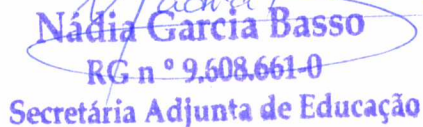 Nádia Garcia Basso
RG n º 9.608.661-0
Secretária Adjunta de Educação